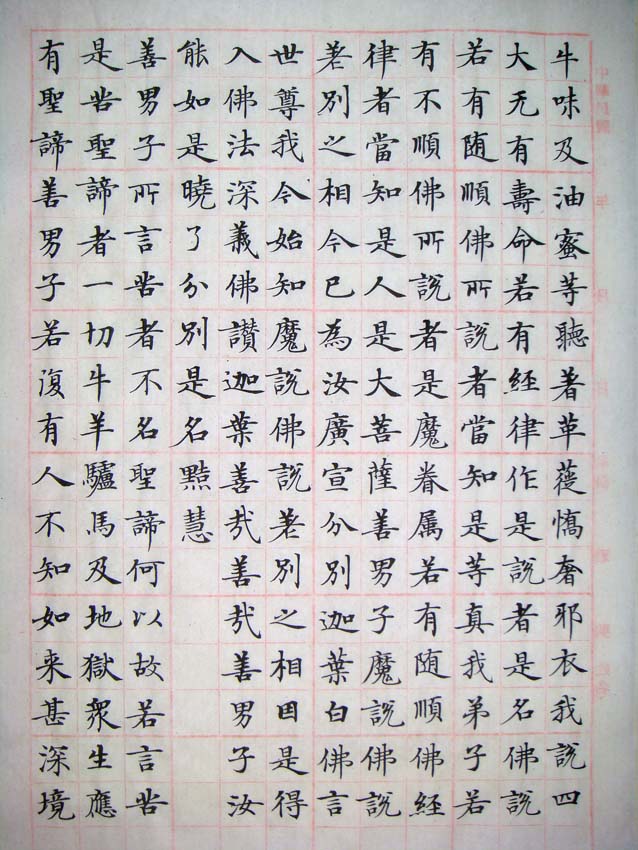 牛味及油蜜等聽著革蓰憍奢邪衣我說四
大无有壽命若有經律作是說者是名佛說
若有随順佛所說者當知是等真我弟子若
有不順佛所說者是魔眷属若有随順佛經
律者當知是人是大菩薩善男子魔說佛說
差別之相今已為汝廣宣分別迦葉白佛言
世尊我今始知魔說佛說差別之相因是得
入佛法深義佛讚迦葉善哉善哉善男子汝
能如是曉了分別是名黠慧
善男子所言苦者不名聖諦何以故若言苦
是苦聖諦者一切牛羊驢馬及地獄眾生應
有聖諦善男子若復有人不知如來甚深境